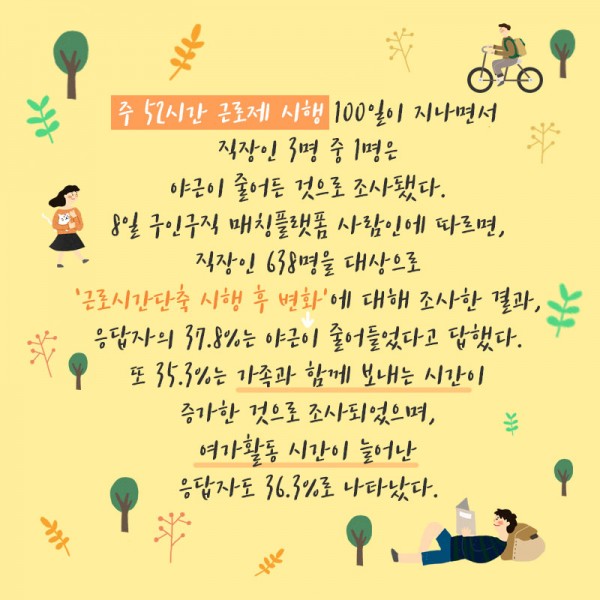 주 52시간 근로제 시행 100일이 지나면서
직장인 3명 중 1명은
야근이 줄어든 것으로 조사됐다.
8일 구인구직 매칭플랫폼 사람인에 따르면,
직장인 638명을 대상으로
'근로시간단축 시행 후 변화'에 대해 조사한 결과,
응답자의 37.8%는 야근이 줄어들었다고 답했다.
또 35.3%는 가족과 함께 보내는 시간이
증가한 것으로 조사되었으며,
여가활동 시간이 늘어난
응답자도 36.3%로 나타났다.